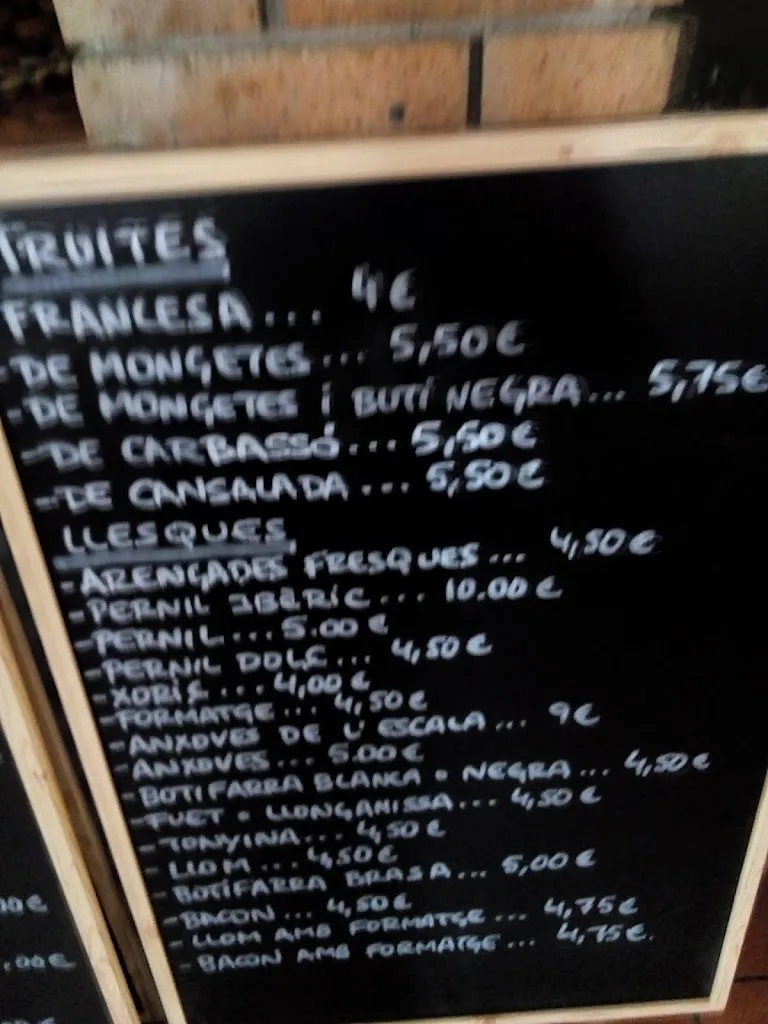 TRUITES
FRANCESA... 4€
-DE MONGETES... 5,50€
-DE MONGETES i BUTI NEGRA... 5,75€
-DE CARBASSÓ... 5,50€
-DE CANSALADA... 5,50€
LLESQUES
-ARENGADES FRESQUES... 4,50€
-PERNIL IBÈRIC... 10.00€
-PERNIL... 5.00€
-PERNIL DOLÇ... 4,50€
-XORIÇ... 4,00€
-FORMATGE... 4,50€
-ANXOVES DE L'ESCALA... 9€
-ANXOVES... 5.00€
-BOTIFARRA BLANCA o NEGRA... 4,50€
-FUET o LLONGANISSA... 4,50€
-TONYINA... 4,50€
-LLOM... 4,50€
-BOTIFARRA BRASA... 5,00€
-BACON... 4,50€
-LLOM AMB FORMATGE... 4,75€
-BACON AMB FORMATGE... 4,75€.